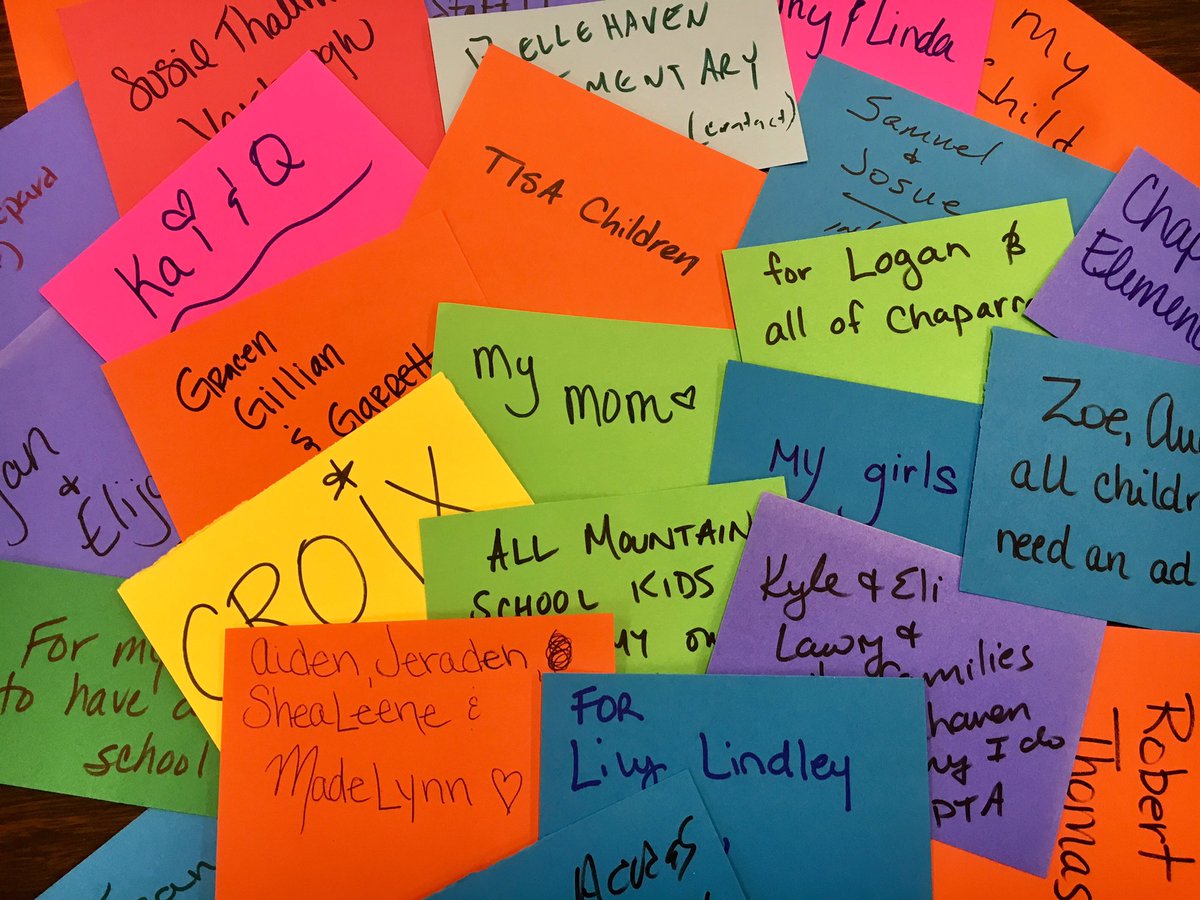 Susie
BELLEHAVEN
(contact)
& Linda
My
Child
Samuel
&
Josue
Kai & Q
TISA Children
for Logan &
all of Chaparr
Chap
Elemen
Gracen
Gillian
& Garrett
My
Mom
My girls
Zoe, Au
all childr
need an ad
&
Elij
CROIX
ALL MOUNTAIN
SCHOOL KIDS
MY OW
Kyle & Eli
Lawry &
families
haven
why I do
PTA
For my
to have a
school
Aiden, Jeraden,
ShealEene &
MadeLynn
FOR
Lily Lindley
Robert
Thomas